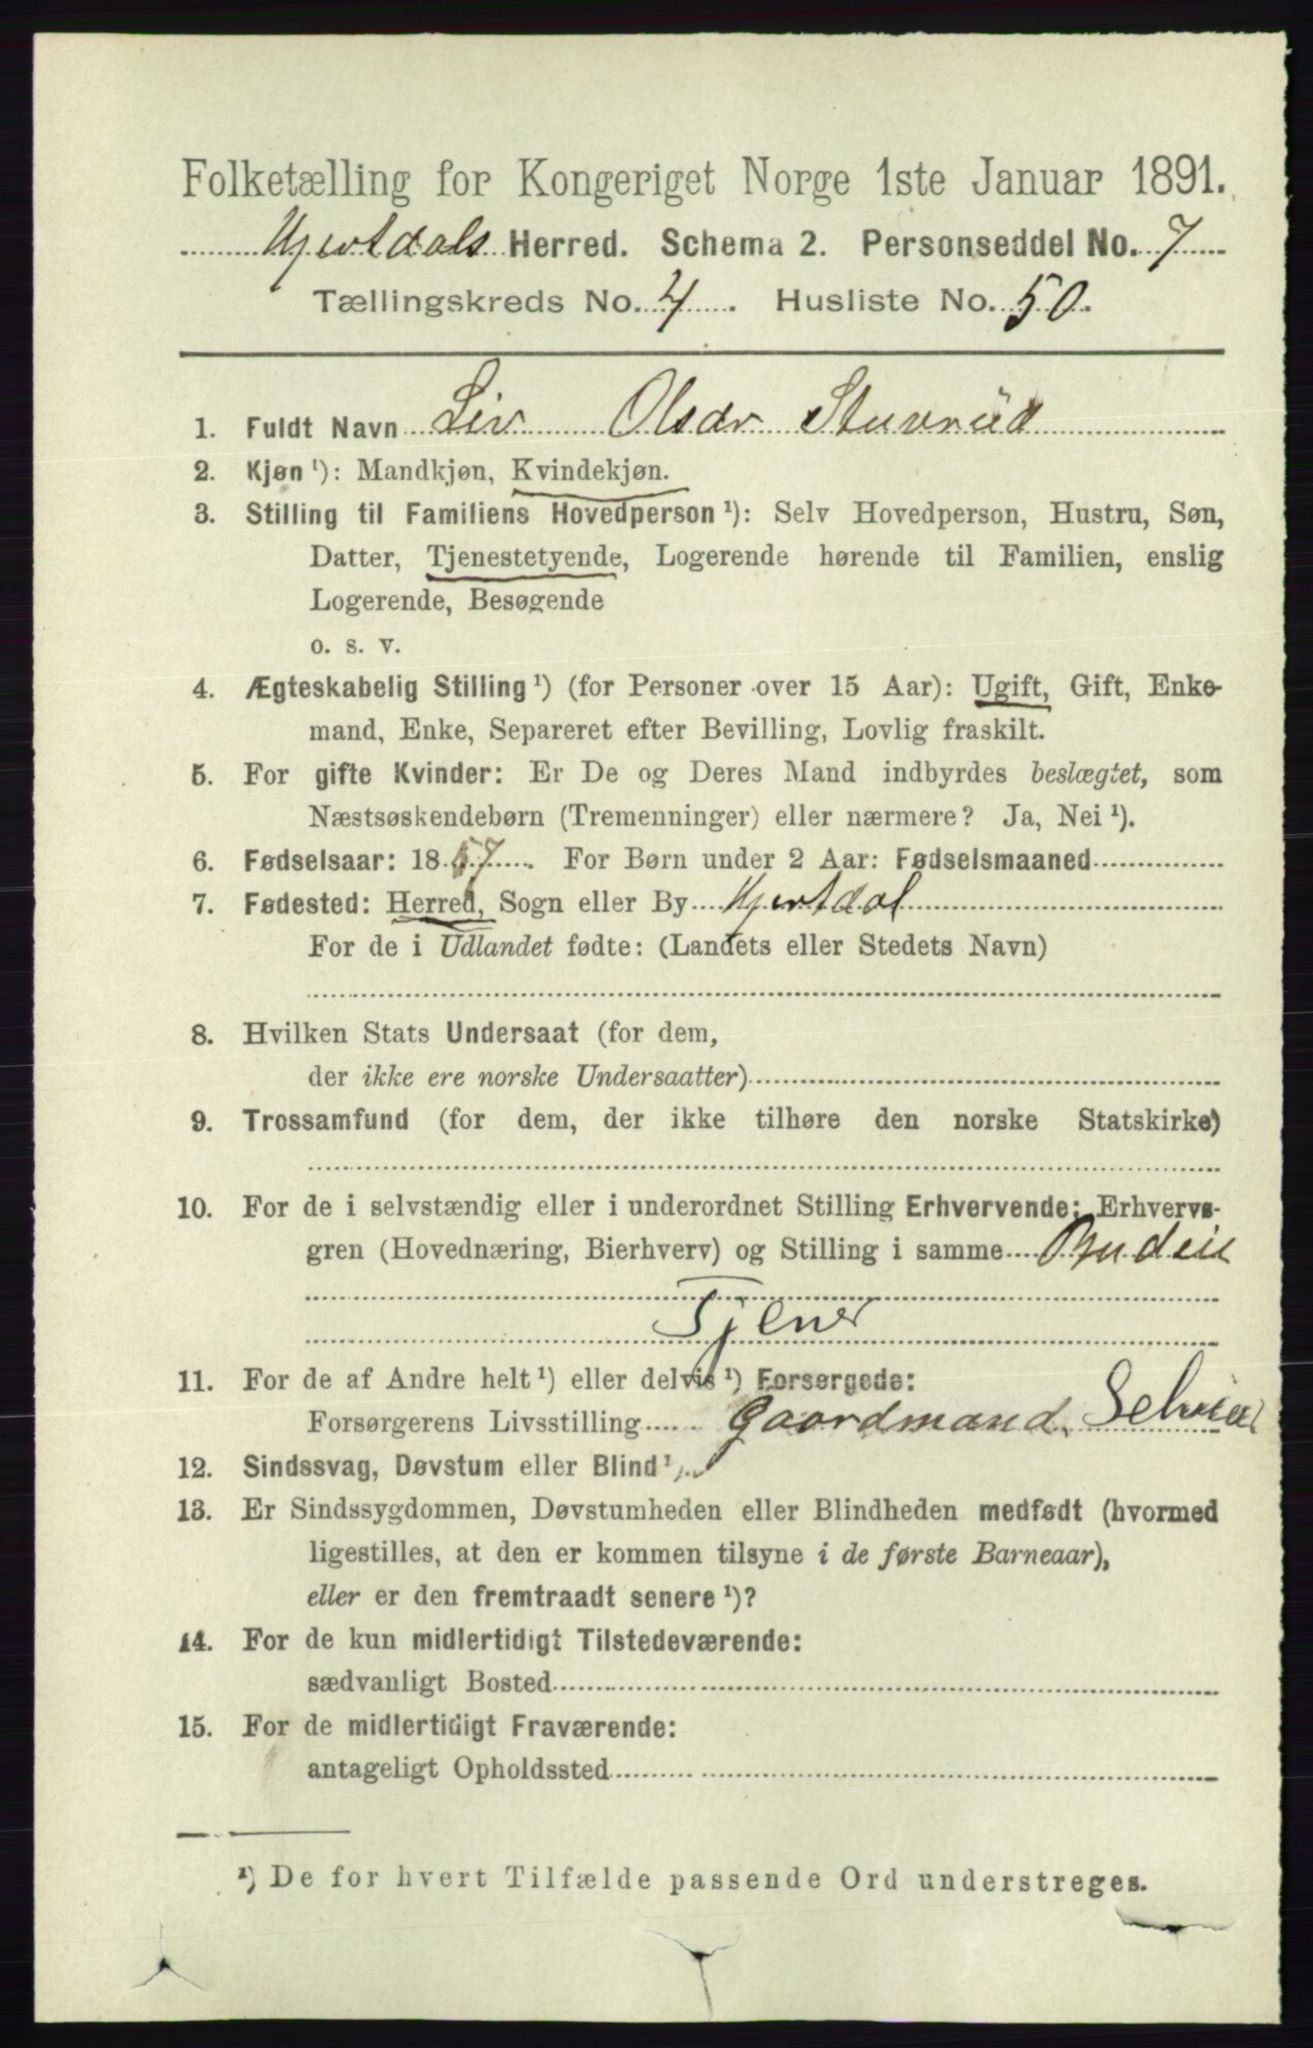 Folketælling for Kongeriget Norge 1ste Januar 1891.
Hjertdals Herred. Schema 2. Personseddel No. 7
Tællingskreds No. 4. Husliste No. 50.
1. Fuldt Navn Liv Olsdr Stuvrüd
2. Kjøn ¹): Mandkjøn, Kvindekjøn.
3. Stilling til Familiens Hovedperson ¹): Selv Hovedperson, Hustru, Søn,
Datter, Tjenestetyende, Logerende hørende til Familien, enslig
Logerende, Besøgende
o. s. v.
4. Ægteskabelig Stilling ¹) (for Personer over 15 Aar): Ugift, Gift, Enke-
mand, Enke, Separeret efter Bevilling, Lovlig fraskilt.
5. For gifte Kvinder: Er De og Deres Mand indbyrdes beslægtet, som
Næstsøskendebørn (Tremenninger) eller nærmere? Ja, Nei ¹).
6. Fødselsaar: 1857. For Børn under 2 Aar: Fødselsmaaned
7. Fødested: Herred, Sogn eller By Hjertdal
For de i Udlandet fødte: (Landets eller Stedets Navn)
8. Hvilken Stats Undersaat (for dem,
der ikke ere norske Undersaatter)
9. Trossamfund (for dem, der ikke tilhøre den norske Statskirke)
10. For de i selvstændig eller i underordnet Stilling Erhvervende: Erhvervs-
gren (Hovednæring, Bierhverv) og Stilling i samme Budeie
Tjener
11. For de af Andre helt ¹) eller delvis ¹) Forsørgede:
Forsørgerens Livsstilling Gaardmand,
12. Sindssvag, Døvstum eller Blind ¹).
13. Er Sindssygdommen, Døvstumheden eller Blindheden medfødt (hvormed
ligestilles, at den er kommen tilsyne i de første Barneaar),
eller er den fremtraadt senere ¹)?
14. For de kun midlertidigt Tilstedeværende:
sædvanligt Bosted
15. For de midlertidigt Fraværende:
antageligt Opholdssted
¹) De for hvert Tilfælde passende Ord understreges.